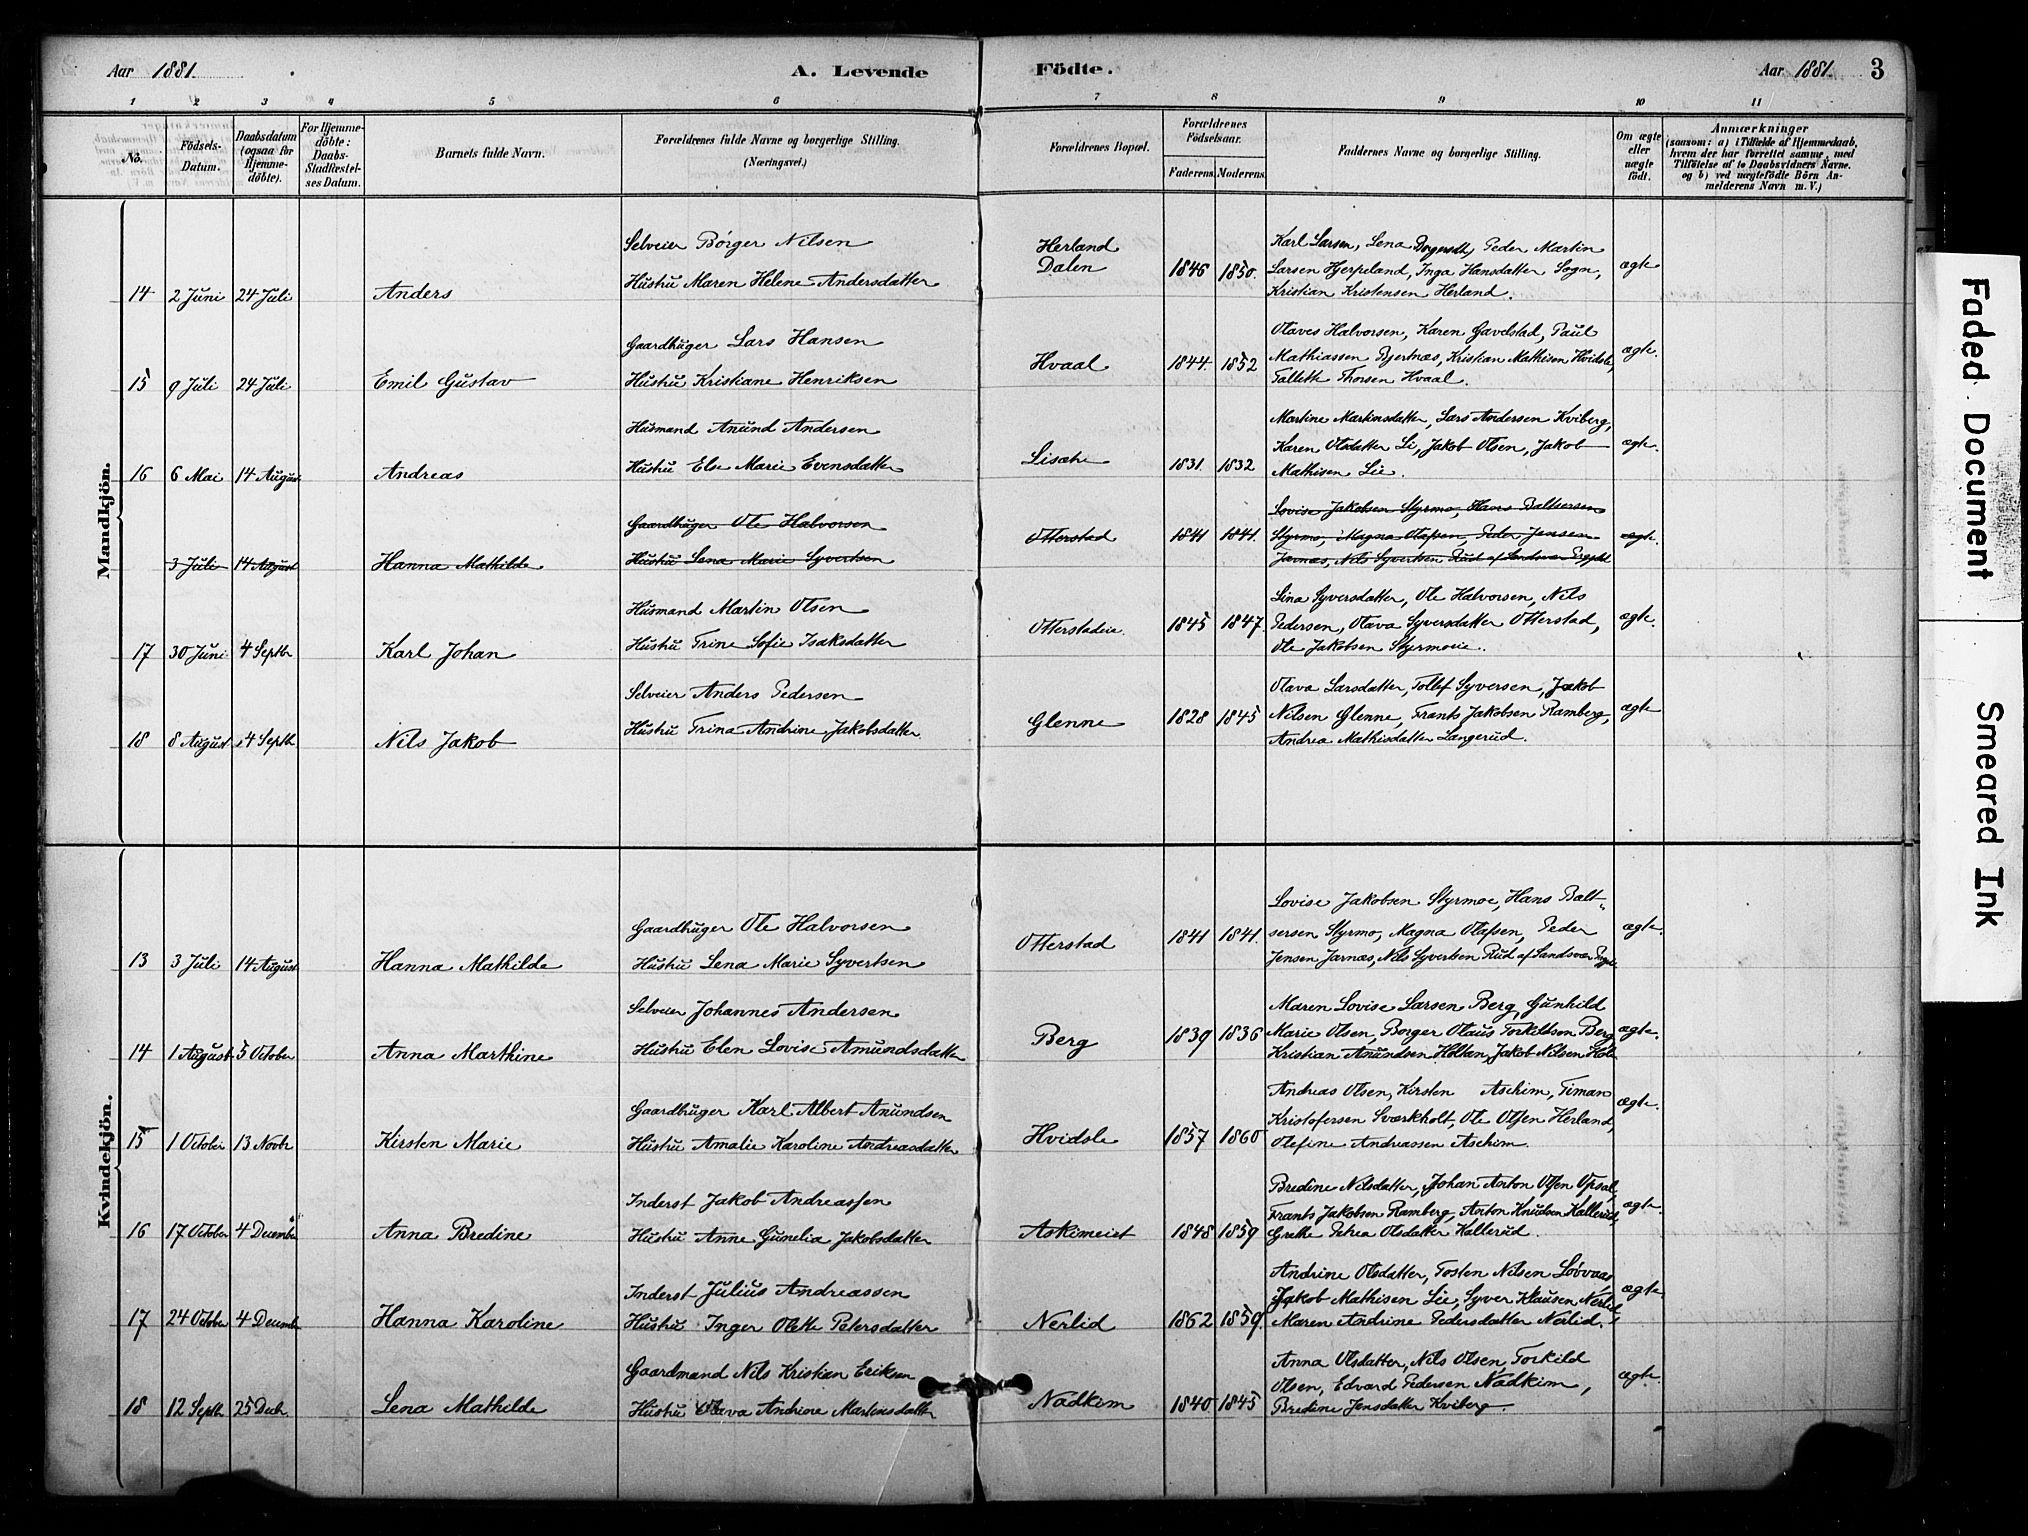 Aar 1881. A. Levende Födte. Aar 1881. 3
1 2 3 4 5 6 7 8 9 10 11
No.
Födsels-Datum.
Daabsdatum (ogsaa for Hjemme-döbte).
For Hjemme-döbte: Daabs-Stadfæstel-ses Datum.
Barnets fulde Navn.
Forældrenes fulde Navne og borgerlige Stilling. (Næringsvei.)
Forældrenes Bopæl.
Forældrenes Födselsaar.
Faderens. Moderens.
Faddernes Navne og borgerlige Stilling.
Om ægte eller uægte födt.
Anmærkninger
(saasom: a) i Tilfælde af Hjemmedaab,
hvem der har forrettet samme, med
Tilföielse af to Daabsvidners Navne.
og b) ved uægtefödte Börn An-
melderens Navn m. V.)
Mandkjön.
Selveier Börger Nilsen Herland Karl Larsen, Lena Peder Martin
14 2 Juni 24 Juli Anders Hustru Maren Helene Andersdatter Dalen 1846 1850. Larsen Hjerpeland, Inga Hansdatter Sogn, ægte
Kristian Kristensen Herland.
Gaardbruger Lars Hansen Olaves Halvorsen, Karen Gavelstad, Paul
15 9 Juli 24 Juli Emil Gustav Hustru Kristiane Henriksen Hvaal 1844. 1852 Mathiassen Bjertnæs, Kristian Mathisen Hvidsle, ægte.
Thorsen Hvaal.
Husmand Anund Andersen Martine Martinsdatter, Lars Andersen Kviberg,
16 6 Mai 14 August Andreas Hustru Else Marie Evensdatter 1831. 1832 Karen Olsdatter Li, Jakob Olsen, Jakob ægte.
Mathisen Lie.
Gaardbruger Ole Halvorsen Lovise Jakobsen Styrmo, Hans Baltsersen
3 Juli 14 August Hanna Mathilde Hustru Lena Marie Syvertsen Otterstad 1841 1841. Styrmo, Magna Olafsen, Peder Jensen ægte.
Jarnæs, Nils Syvertsen Rud af Sandsvær
Husmand Martin Olsen Lina Syversdatter, Ole Halvorsen, Nils
17 30 Juni 4 Septbr Karl Johan Hustru Trine Sofie Isaksdatter Otterstadeie. 1845 1847. Pedersen, Olava Syversdatter Otterstad, ægte.
Ole Jakobsen Styrmoeie.
Selveier Anders Pedersen Olava Larsdatter, Tollef Syversen, Jakob
18 8 August 4 Septbr Nils Jakob Hustru Trina Andrine Jakobsdatter Glenne 1828 1845 Nilsen Glenne, Frants Jakobsen Ramberg, ægte
Andrea Mathisdatter Langerud.
Kvindekjön.
Gaardbruger Ole Halvorsen Lovise Jakobsen Styrmoe, Hans Balt-
13 3 Juli 14 August Hanna Mathilde Hustru Lena Marie Syvertsen Otterstad 1841 1841. sersen Styrmo, Magna Olafsen, Peder ægte.
Jensen Jarnæs, Nils Syvertsen Rud af Sandsvær
Selveier Johannes Andersen Maren Lovise Larsen Berg, Gunhild
14 1 August 5 October Anna Marthine Hustru Elen Lovise Amundsdatter Berg 1839 1836 Marie Olsen, Borger Olaus Torkildsen Berg ægte.
Kristian Anundsen Holtan, Jakob Nilsen
Gaardbruger Karl Albert Anundsen Andreas Olsen, Kirsten Aschim, Timan
15 1 October 13 Novbr Kirsten Marie Hustru Amalie Karoline Andreasdatter Hvidsle 1857 1860 Kristofersen Sværkholt, Ole Olsen Herland, ægte.
Olefine Andreassen Aschim.
Inderst Jakob Andreassen Bredine Nilsdatter, Johan Anton Olsen Opsal,
16 17 October 4 December Anna Bredine Hustru Anne Gunelia Jakobsdatter Askimeiet 1848 1859 Frants Jakobsen Ramberg, Anton Knudsen Kallerud, ægte.
Grethe Petrea Olsdatter Kallerud.
Inderst Julius Andreassen Andrine Olsdatter, Tosten Nilsen Løvaas
17 24 October 4 Decemb Hanna Karoline Hustru Inger Olette Petersdatter Nerlid 1862 1859. Jakob Mathisen Lie, Syver Klausen Nerlid, ægte
Maren Andrine Pedersdatter Nerlid.
Gaardmand Nils Kristian Eriksen Anna Olsdatter, Nils Olsen, Torkild
18 12 Septbr 25 Decbr. Lena Mathilde Hustru Olava Andrine Martinsdatter Nadkim 1840 1845 Olsen, Edvard Pedersen Nadkim, ægte.
Bredine Jensdatter Kviberg.
Faded Document
Smeared Ink